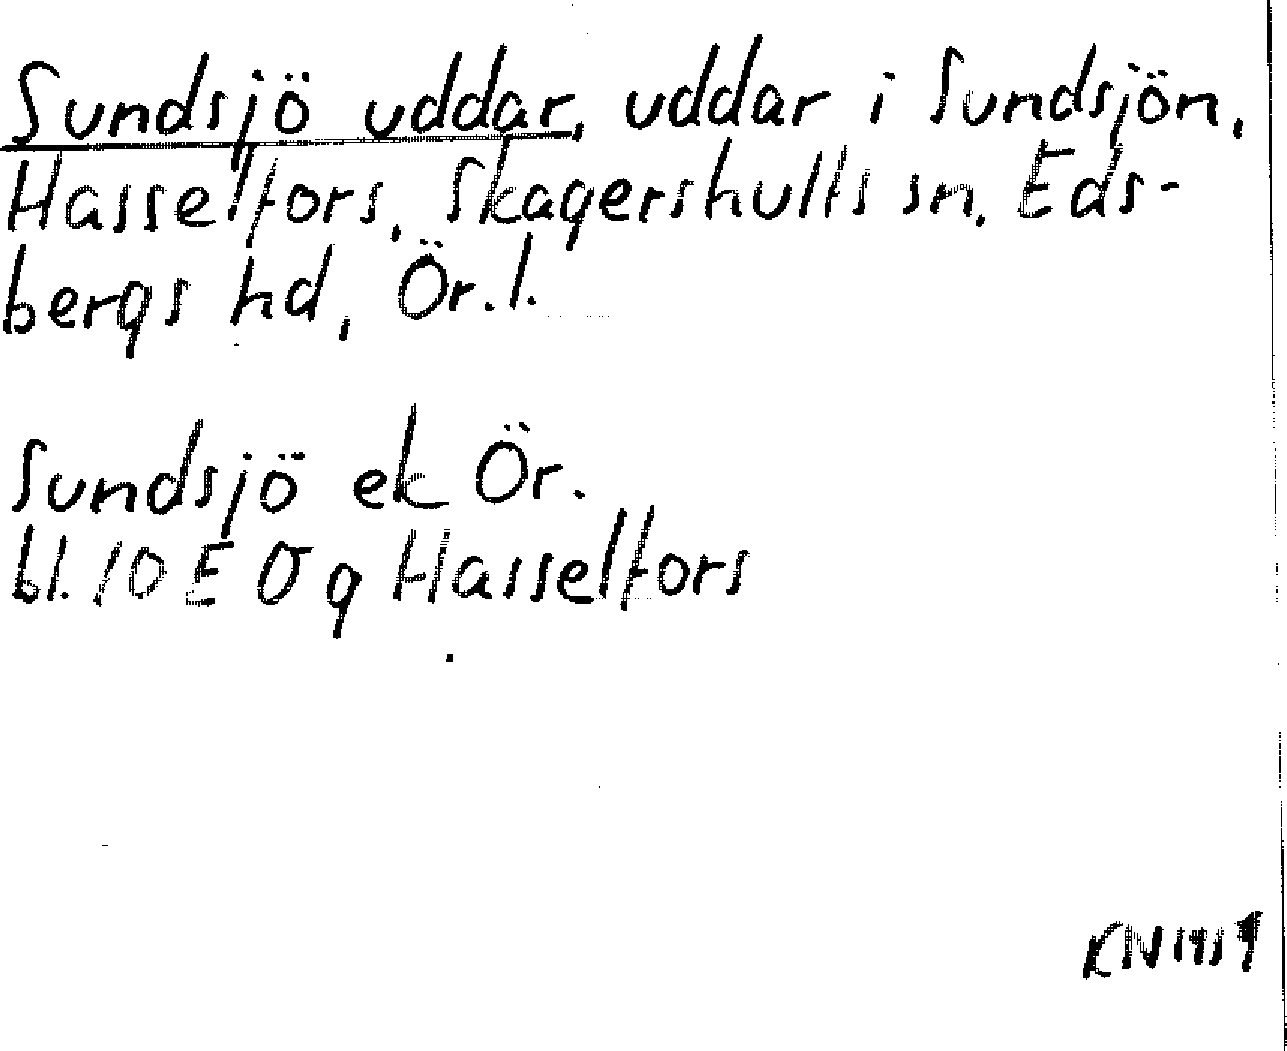 Sundsjö uddar, uddar i Sundsjön,
Hasselfors, Skagershults sn, Eds-
bergs hd, Ör. l.
Sundsjö ek Ör.
bl. 10 E 0 g Hasselfors